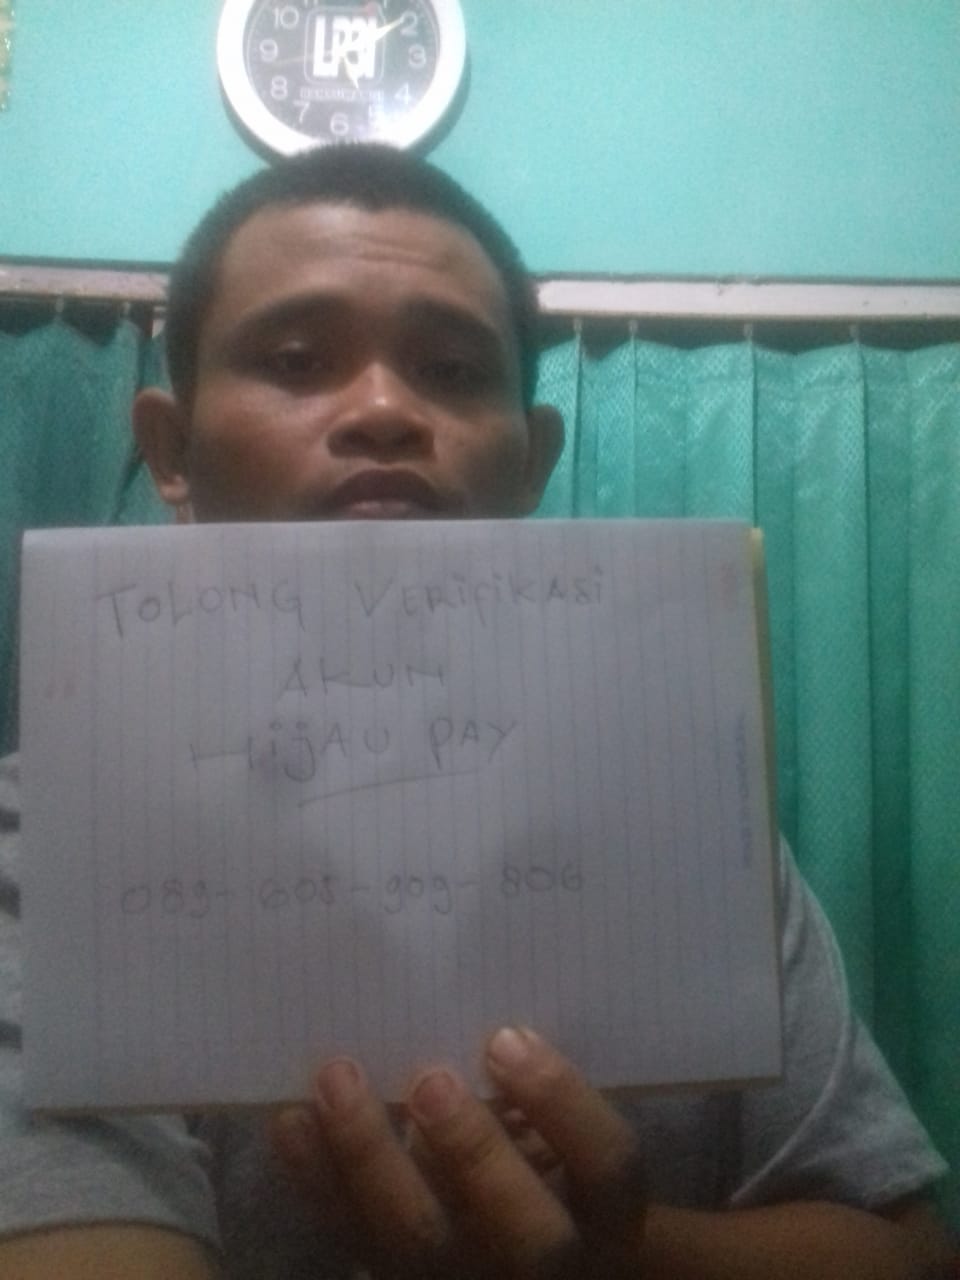 10
2
9
3
8
4
7
6
LP3I
TOLONG VERifiKASi
AKUN
HijAU PAY
089-605-909-806